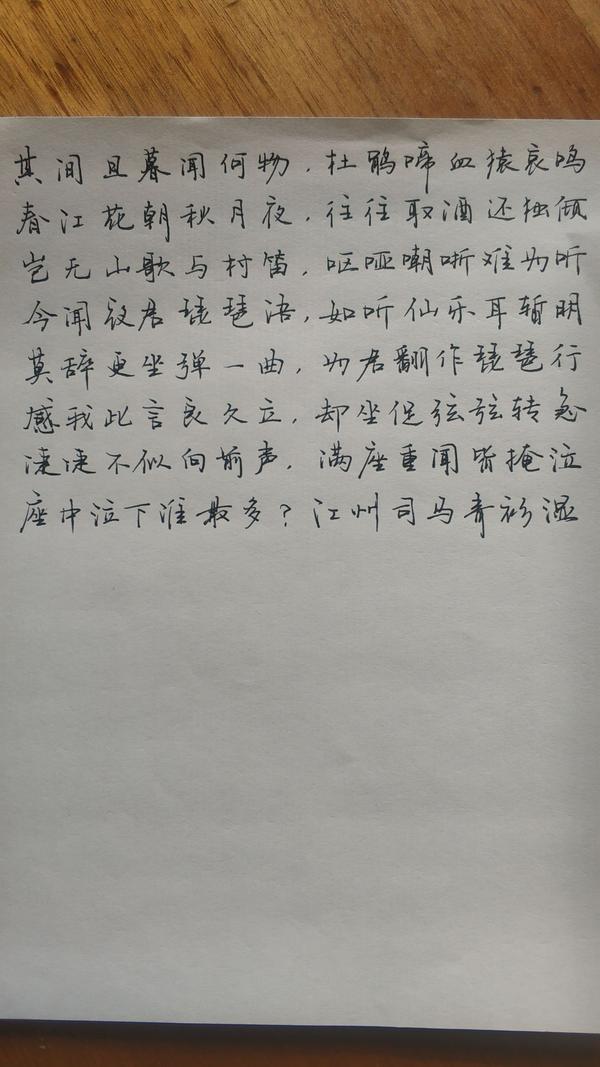 其间旦暮闻何物，杜鹃啼血猿哀鸣
春江花朝秋月夜，往往取酒还独倾
岂无山歌与村笛，呕哑嘲哳难为听
今闻君琵琶语，如听仙乐耳暂明
莫辞更坐弹一曲，为君翻作琵琶行
感我此言良久立，却坐促弦弦转急
凄凄不似向前声，满座重闻皆掩泣
座中泣下谁最多？江州司马青衫湿